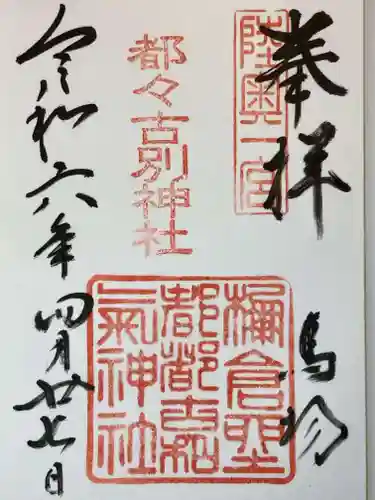 奉拝
陸奥一宮
馬場
都々古別神社
棚倉
都都古和
氣神社
令和六年四月廿七日